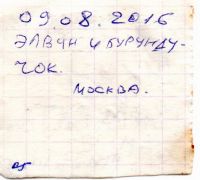 09.08.2016
ЭЛВИН и БУРУНДУ-
ЧОК.
МОСКВА.